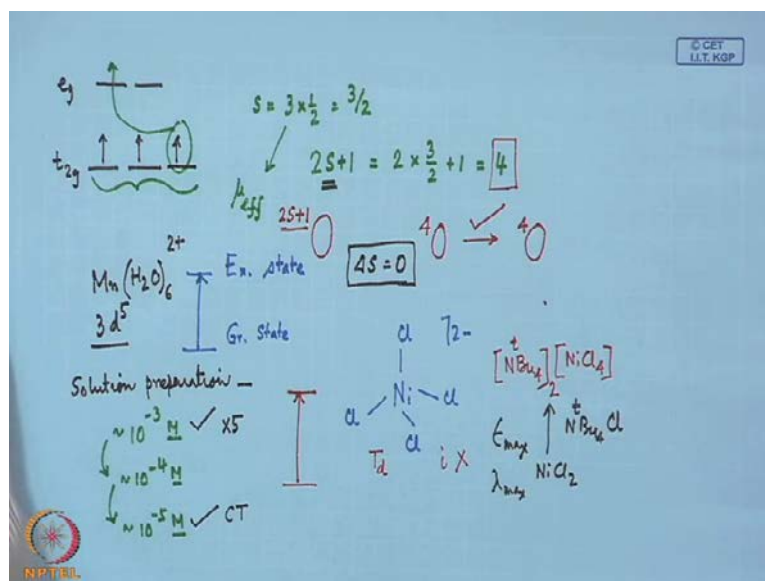 © CET
I.I.T. KGP
eg
t2g
S = 3 × 1/2 = 3/2
2S+1 = 2 × 3/2 + 1 = 4
μeff
2S+1
4O → 4O
ΔS = 0
Mn(H2O)6 2+
3d5
Ex. state
Gr. state
Solution preparation –
~10-3 M ✓ x5
~10-4 M
~10-5 M ✓ CT
Cl
]2-
Ni
Cl
Cl
Cl
Td
i X
[NBu4t]2[NiCl4]
NBu4tCl
Emax
λmax
NiCl2
NPTEL